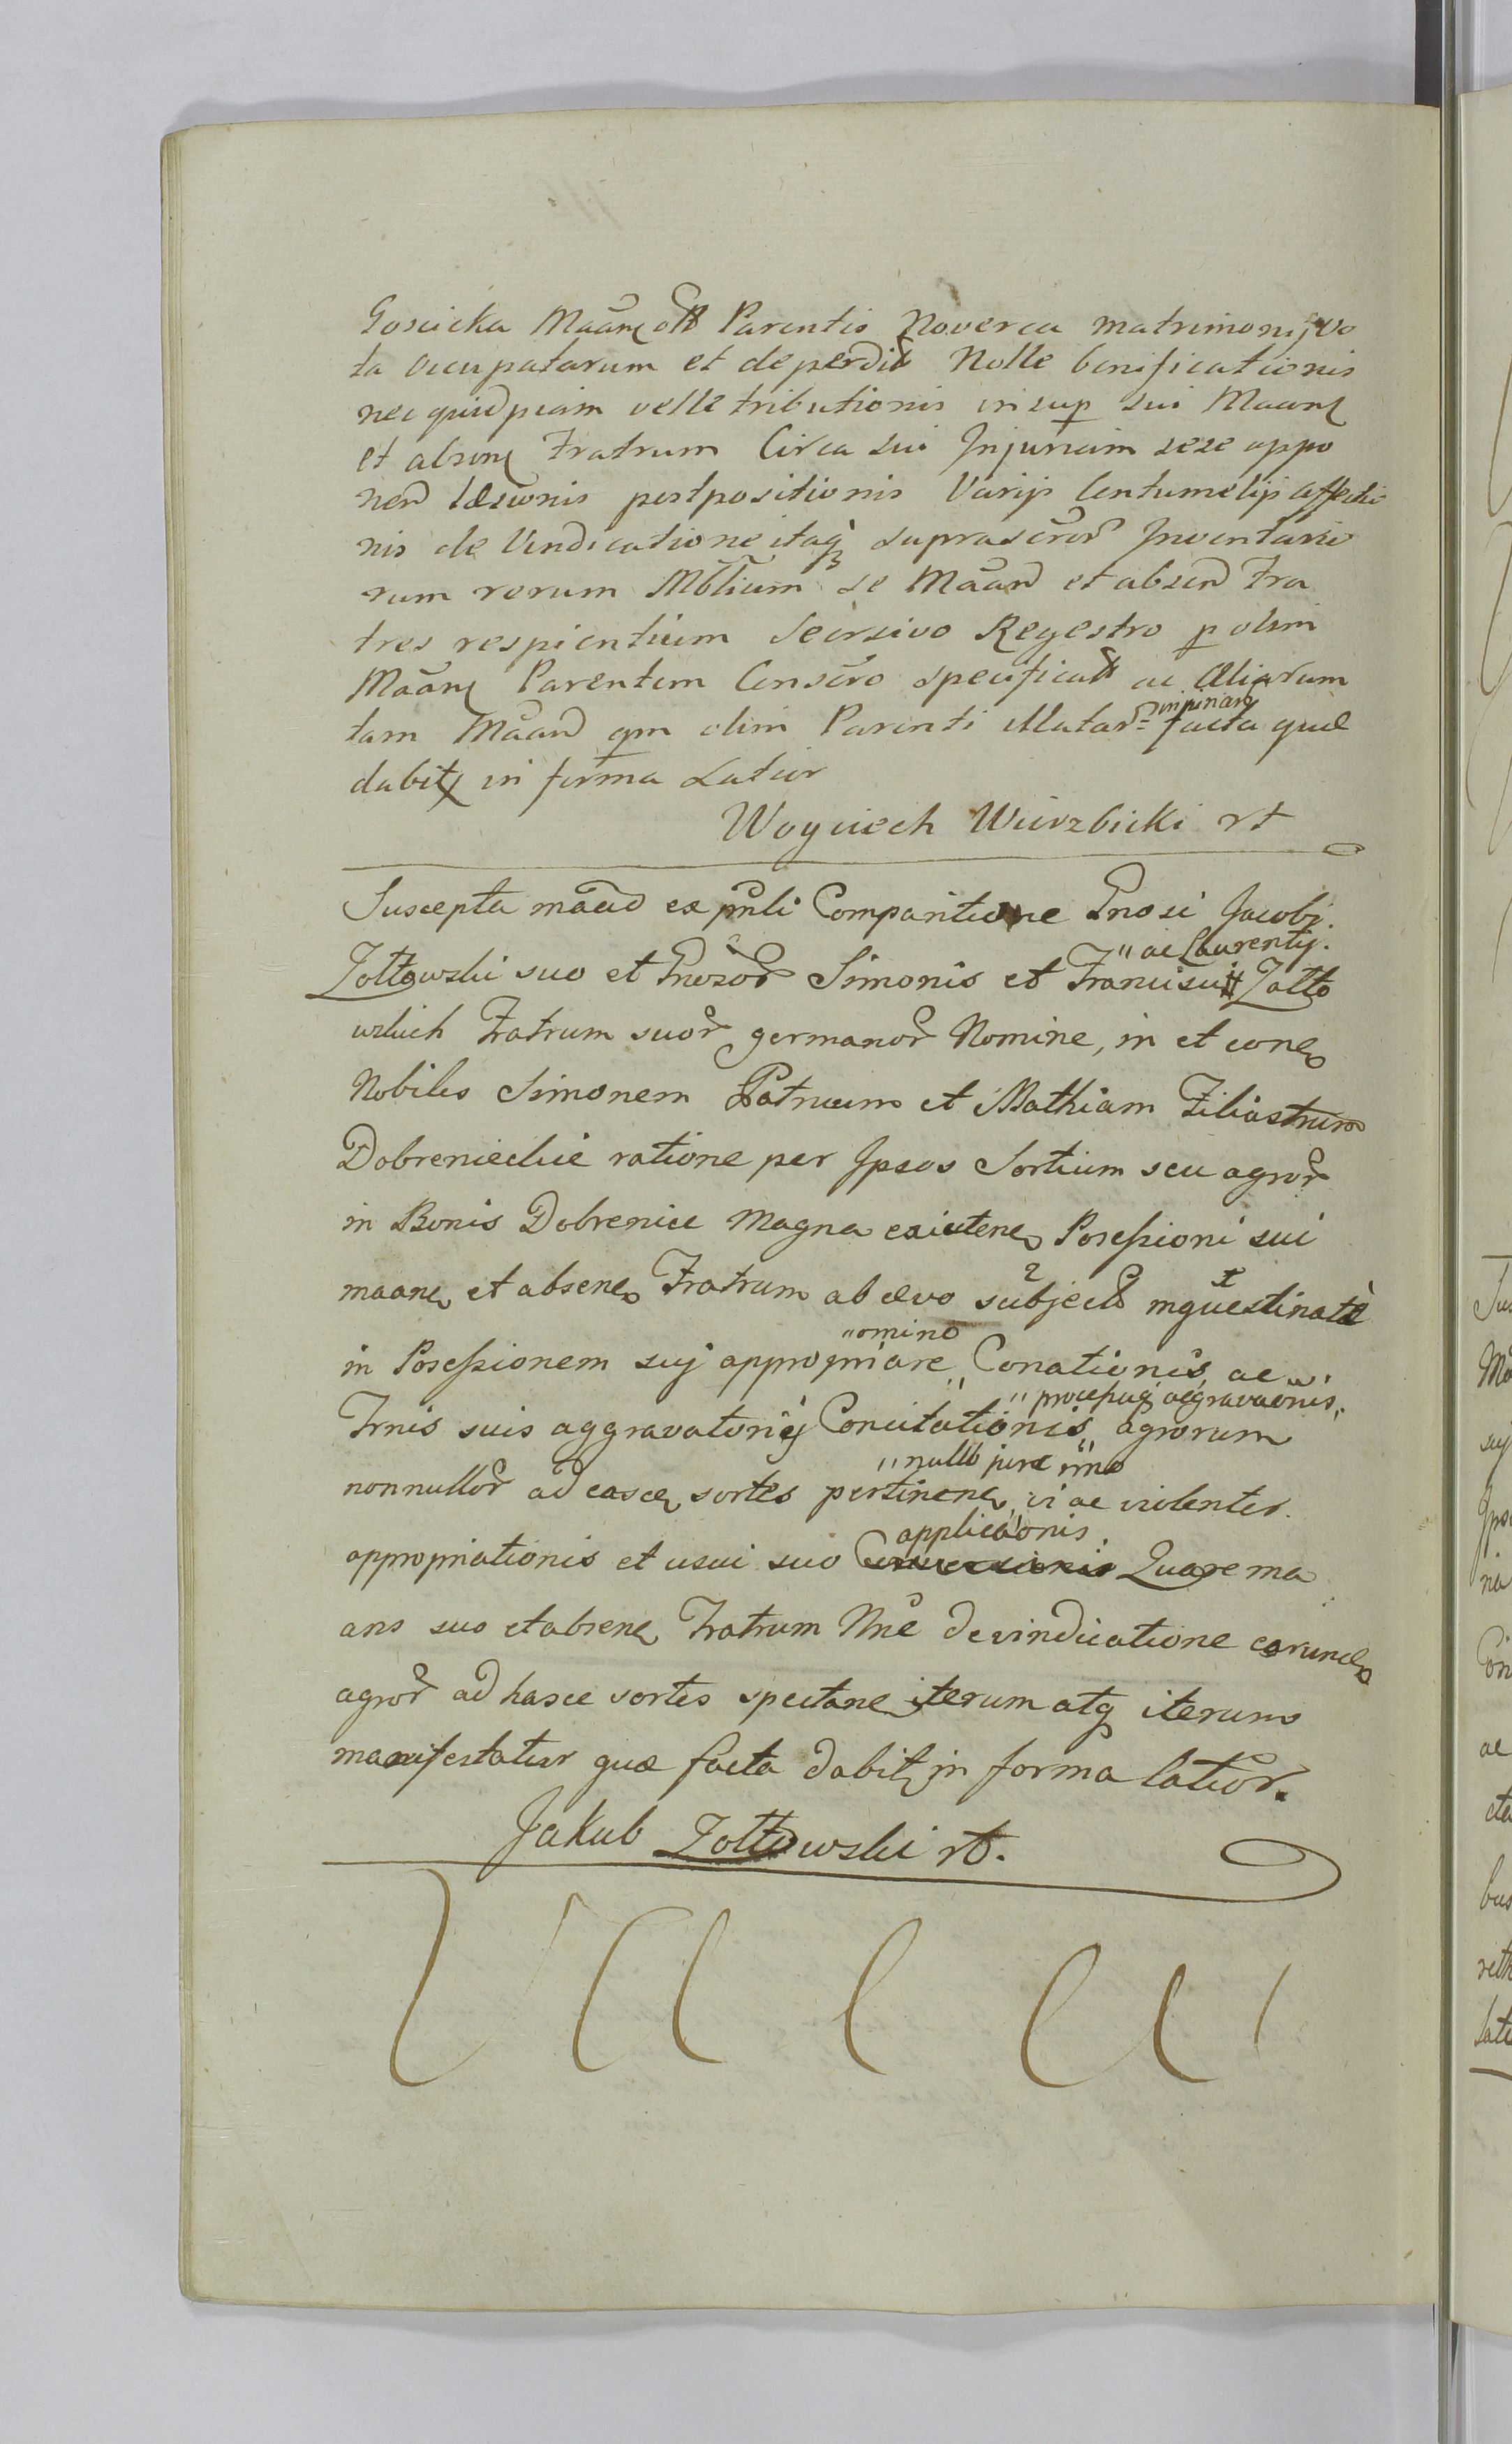 Gosucka Maãns olt Parentis Noverca matrimonij vo
ta occupatarum et deperdit Nolle bonificationis
nec quidpiam velle tributionis insup sui Maans
et absens Fratrum Circa sui Injuriam sese oppo
nend læsionis postpositionis Varijs Contumelijs affectio
nis de Vindicatione itaq suprascror Inventario
rum rerum Mblium se Maand et absend Fra
tres respicientium Seorsivo Regestro p olim
Maans Parentem Conscro specificatt ac Aliarum
injuriar
tam Maand qm olim Parenti illatar facta quæ
dabit in forma Latior
Woyciech Wierzbicki rt
Suscepta maãd ex pnli Comparitione Gnosi Jacobj
" ac Laurentij.
Zołtowski suo et Gnosor Simonis et Francisci Zołto
wskich Fratrum suor germanor Nomine, in et con
Nobiles Simonem Patruum et Mathiam Filiastrum
Dobrenieckie ratione per Ipsos Sortium seu agror
in Bonis Dobrenice Magna existen Possessioni sui
maans et absens Fratrum ab ævo subject
in Possessionem suj appropriare Conationis, ac
omino
" præcepuę aggravaõnis,
Frnis suis aggravatorij Concitationis, agrorum
" nullo jure imo
nonnullor ad easce sortes pertinen, vi ac violenter
applicaõnis
appropriationis et usui suo Conversionis Quare ma
ans suo et absen Fratrum Nne de vindicatione eorund
agror ad hasce sortes spectan iterum atq iterum
manifestatur quæ facta dabit in forma latior.
Jakub Zołtowski rt.